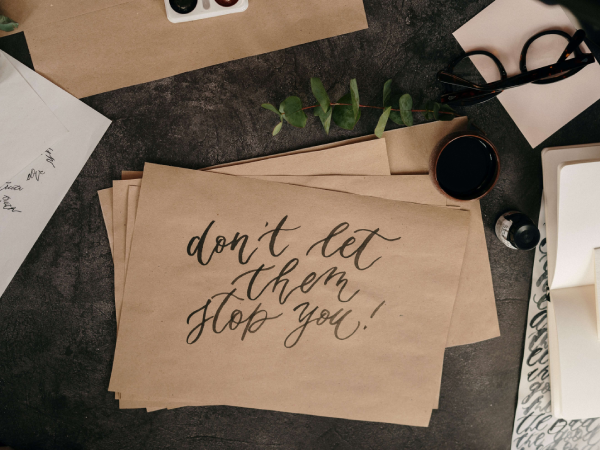 don't let
them
stop you!